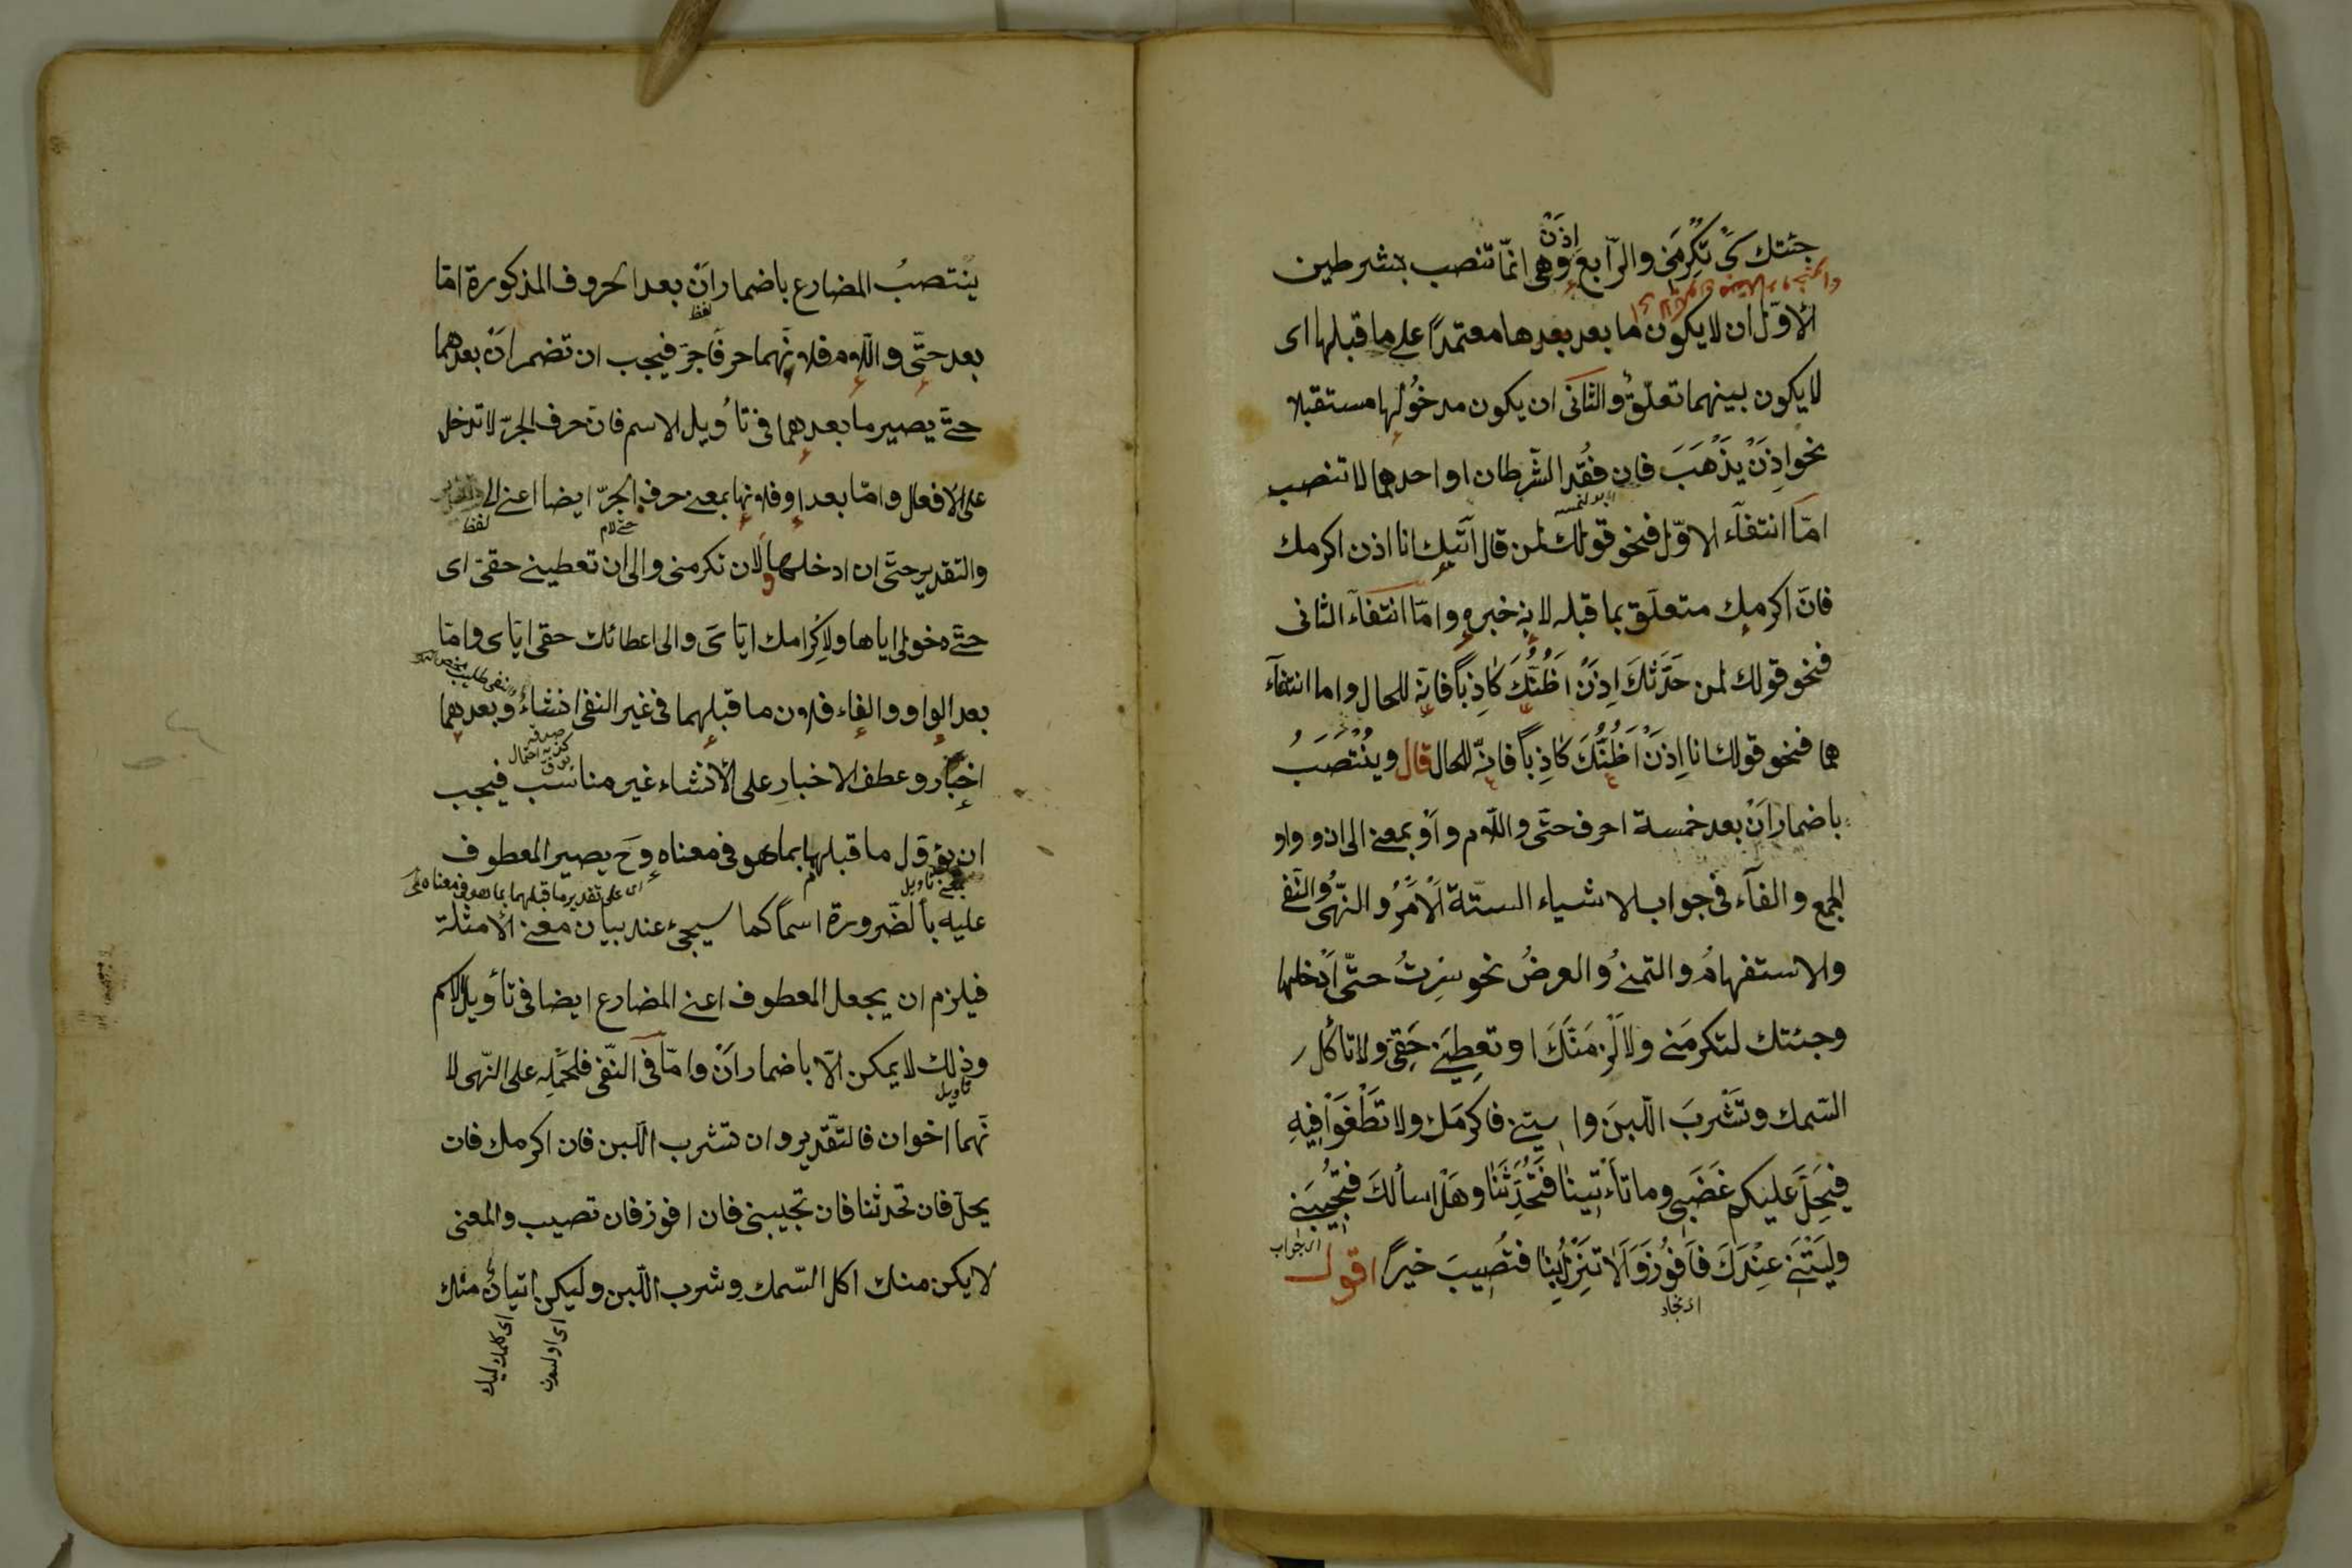 جئتك كَىْ تُكْرِمَنى والرّابع اِذَنْ وهى انّما تنصب بشرطين
الاوّل ان لا يكون ما بعد بعدها معتمدًا على ما قبلها اى
لا يكون بينهما تعلّقٌ والثانى ان يكون مدخُولُها مستقبلا
نحو اِذَنْ يَذْهَبَ فان فُقد الشّرطان او احدهما لا تنصب
امّا انتفآء الاوّل فنحو قولك لمن قال اتيك انا اذن اكرمك
فانّ اكرمك متعلّق بما قبله لانه خبره وامّا انتفآء الثانى
فنحو قولك لمن حَدّثكَ اِذَنْ اَظُنُّكَ كاذِباً فانه للحال واما انتفآء
هما فنحو قولك انا اِذَنْ اَظُنُّكَ كاذِباً فانّه للحال قال ويُنْتَصَبُ
باضمار اَنْ بعد خمسة احرف حتّى واللّام واَوْ بمعنى الى ان وواو
الجمع والفآء فى جواب الاشياء الستّة اَلْاَمْرُ والنّهىُ والنّفى
والاستفهامُ والتمنىُ والعرضُ نحو سِرتُ حتّى اَدْخلها
وجئتك لتكرمَنى ولَاَلْزِمَنَّكَ او تعطِيَنى حَقِى ولا تأكل
السّمك وتَشْرَبَ اللّبنَ وايتنى فاكرمَك ولا تَطْغَوْا فيهِ
فيَحِلَّ عليكم غَضَبى وما تأتينا فَتُحَدِّثَنَا وهَلْ اسألكَ فتُجيبَنى
اى جواب
ولَيْتَنى عِنْدَكَ فَاَفُوزَ وَاَلَا تَنْزِلُ بِنَا فتُصيبَ خيرًا اقول
ينْتصبُ المضارع باضمار اَنْ بعد الحروف المذكورة امّا
لفظ
بعد حتّى واللّام فلانّهما حرفا جرّ فيجب ان تضمر انْ بعدهما
حتّى يصير ما بعدهما فى تأويل الاسم فانّ حرف الجرّ لا تدخل
على الافعال وامّا بعد او فلانها بمعنى حرف الجرّ ايضا اعنى الى
لفظ
والتقدير حتّى ان ادخلها ولان تكرمنى والى ان تعطينى حقى اى
حتّى دخولى اياها ولاِكرامك ايّاىَ والى اعطائك حقى ايّاى وامّا
بعد الواو والفاء فلان ما قبلهما فى غير النفى انشاءٌ وبعدهما
اخبار وعطف الاخبار على الانشاء غير مناسب فيجب
ان يؤوّل ما قبلهما بما هو فى معناه وح يصير المعطوف
اى على تقدير ما قبلهما بما هو فى معناه
عليه بالضّرورة اسمًا كما سيجىء عند بيان معنى الامثلة
فيلزم ان يجعل المعطوف اعنى المضارع ايضا فى تأويل الاسم
وذلك لا يمكن الّا باضمار اَنْ وامّا فى النّفى فلحمله على النّهى لا
تأويل
نّهما اخوان فالتّقدير وان تشرب اللّبن فان اكرمك فان
يحلّ فان تحدثنا فان تجيبنى فان افوز فان تصيب والمعنى
لا يكن منك اكل السّمك وشرب اللّبن وليكن اتيانٌ منك